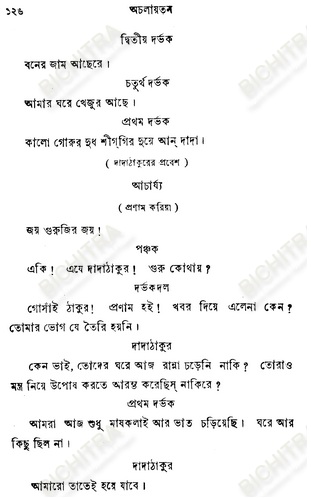 ১২৬ অচলায়তন
দ্বিতীয় দর্ভক
বনের জাম আছেরে।
চতুর্থ দর্ভক
আমার ঘরে খেজুর আছে।
প্রথম দর্ভক
কালো গোরুর দুধ শীগ্‌গির দুয়ে আন্ দাদা।
( দাদাঠাকুরের প্রবেশ )
আচার্য্য
( প্রণাম করিয়া )
জয় গুরুজির জয়!
পঞ্চক
একি! এযে দাদাঠাকুর! গুরু কোথায়?
দর্ভকদল
গোসাঁই ঠাকুর! প্রণাম হই! খবর দিয়ে এলেনা কেন?
তোমার ভোগ যে তৈরি হয়নি।
দাদাঠাকুর
কেন ভাই, তোদের ঘরে আজ রান্না চড়েনি নাকি? তোরাও
মন্ত্র নিয়ে উপোষ করতে আরম্ভ করেছিস্ নাকিরে?
প্রথম দর্ভক
আমরা আজ শুধু মাষকলাই আর ভাত চড়িয়েছি। ঘরে আর
কিছু ছিল না।
দাদাঠাকুর
আমারো তাতেই হয়ে যাবে।
BICHITRA
BICHITRA
BICHITRA
BICHITRA
BICHITRA